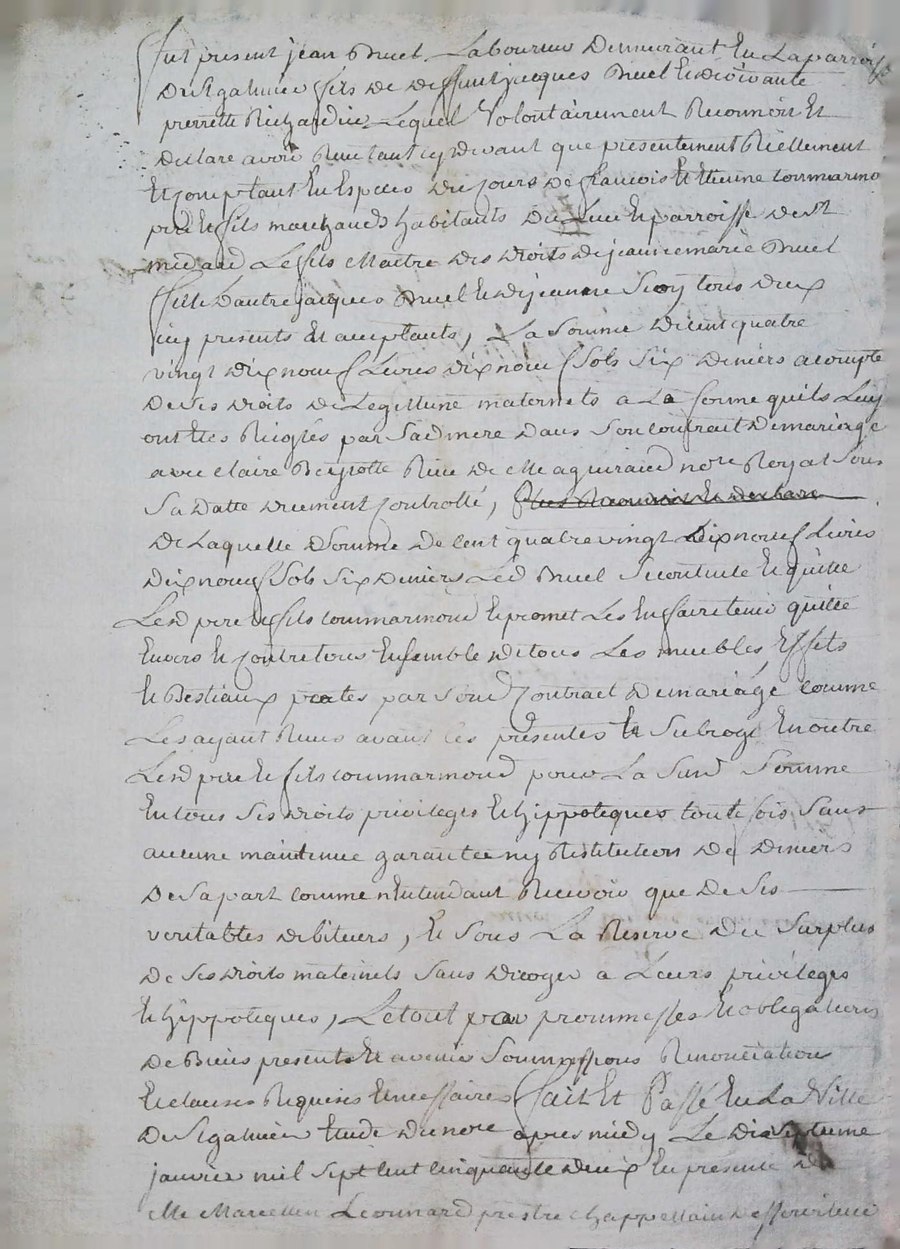 Fut present jean Bruel Laboureur Demeurant En Laparroisse
De St galmier fils de deffunt jacques Bruel Et De vivante
pierrette Lequel Volontairement Reconnoit Et
declare avoir Receu tant cy devant que presentement Reellement
Et comptant En Especes du jours de francois Et Etienne
pere Et fils marchands habitants Du Lieu Et parroisse de St
medard Le fils Maitre des droits de jeanne marie Bruel
fille D'autre jacques Bruel Et de jeanne tous deux
icy presents Et acceptants, La Somme de cent quatre
vingt dix neuf Livres dix neuf Sols Six deniers acompte
De ses droits de Legittime maternels a La forme quils Luy
ont Etes Reigles par Sad mere dans Son Contrait de mariage
avec claire Receu de Me aguiraud no.re Royal Sous
Sa datte deuement Controllé,
De Laquelle Somme de Cent quatre vingt dix neuf Livres
dix neuf Sols Six deniers Led Bruel Se contente Et quitte
Lesd pere Et fils Et promet Les En faire tenir quitte
Envers Et Contre tous Ensemble de tous Les meubles, Effets
Et Bestiaux portes par Sond Contract de mariage comme
Les ayant Receus avant Ces presentes Et Subroge En outre
Lesd pere Et fils pour La Susd Somme
En tous Ses droits privileges Et hippoteques toute fois Sans
aucune maintenue garantie ny Restitution De deniers
De Sa part comme n'Entendant Recevoir que De Ses
veritables debiteurs, Et Sous La Reserve du Surplus
De Ses droits maternels Sans deroger a Leurs privileges
Et hippoteques, Le tout par prommesses Et obligations
De Biens presents Et avenir Soummissions Renonciations
Et clauses Requises Et necessaires fait Et Passé En La Ville
De St galmier Etude du no.re apres midy Le dix septieme
janvier mil Sept Cent Cinquante deux En presence de
Me Marcellin Leonnard prestre chappellain